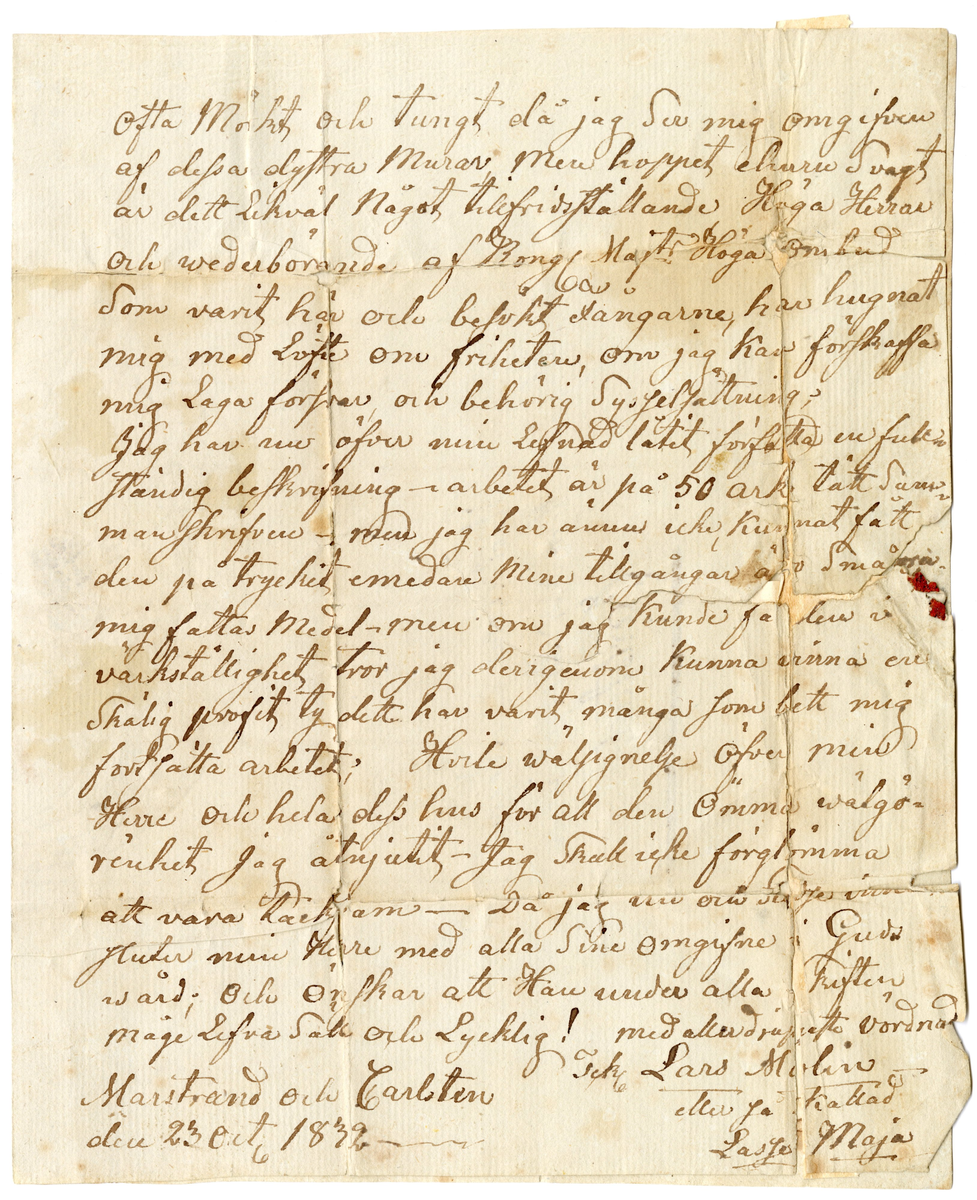 ofta Mörkt och tungt då jag Ser mig omgifven
af dessa dystra Murar, Men hoppet ehuru Svagt
är dett Likväl Något tillfridsställande Höga Herrar
och wederbörande af Kongl Majts Höga ombud
Som varit här och besökt Fångarne, har hugnat
mig med Löfte om friheten, om jag Kan förskaffa
mig Laga förfvar, och behörig Sysselsättning;
Jag har nu öfver min Lefnad låtit författa en full-
ständig beskrifning – arbetet är på 50 ark tätt Sam-
manskrifven – men jag har ännu icke, Kunnat fått
den på tryckit emedan Mine tillgångar är Små
mig fattas Medel – men om jag Kunde få den i
värkställighet tror jag derigenom Kunna vinna en
Skälig profit ty dett har varit många som bett mig
fortsätta arbetet; Hvile wälsignelse öfver min
Herre och hela dess hus för all den Ömma wälgö-
renhet Jag åtnjutit – Jag Skall icke förglömma
att vara tacksam — Då jag nu
sluter min Herre med alla Sine omgifne i Guds
wård; och Önskar att Han under alla Skiften
måge Lefva Säll och Lycklig! med alldradjupaste vördnad
Marstrand och Carlsten Lars Molin
eller så Kallad
den 23 Oct 1832 — Lasse Maja